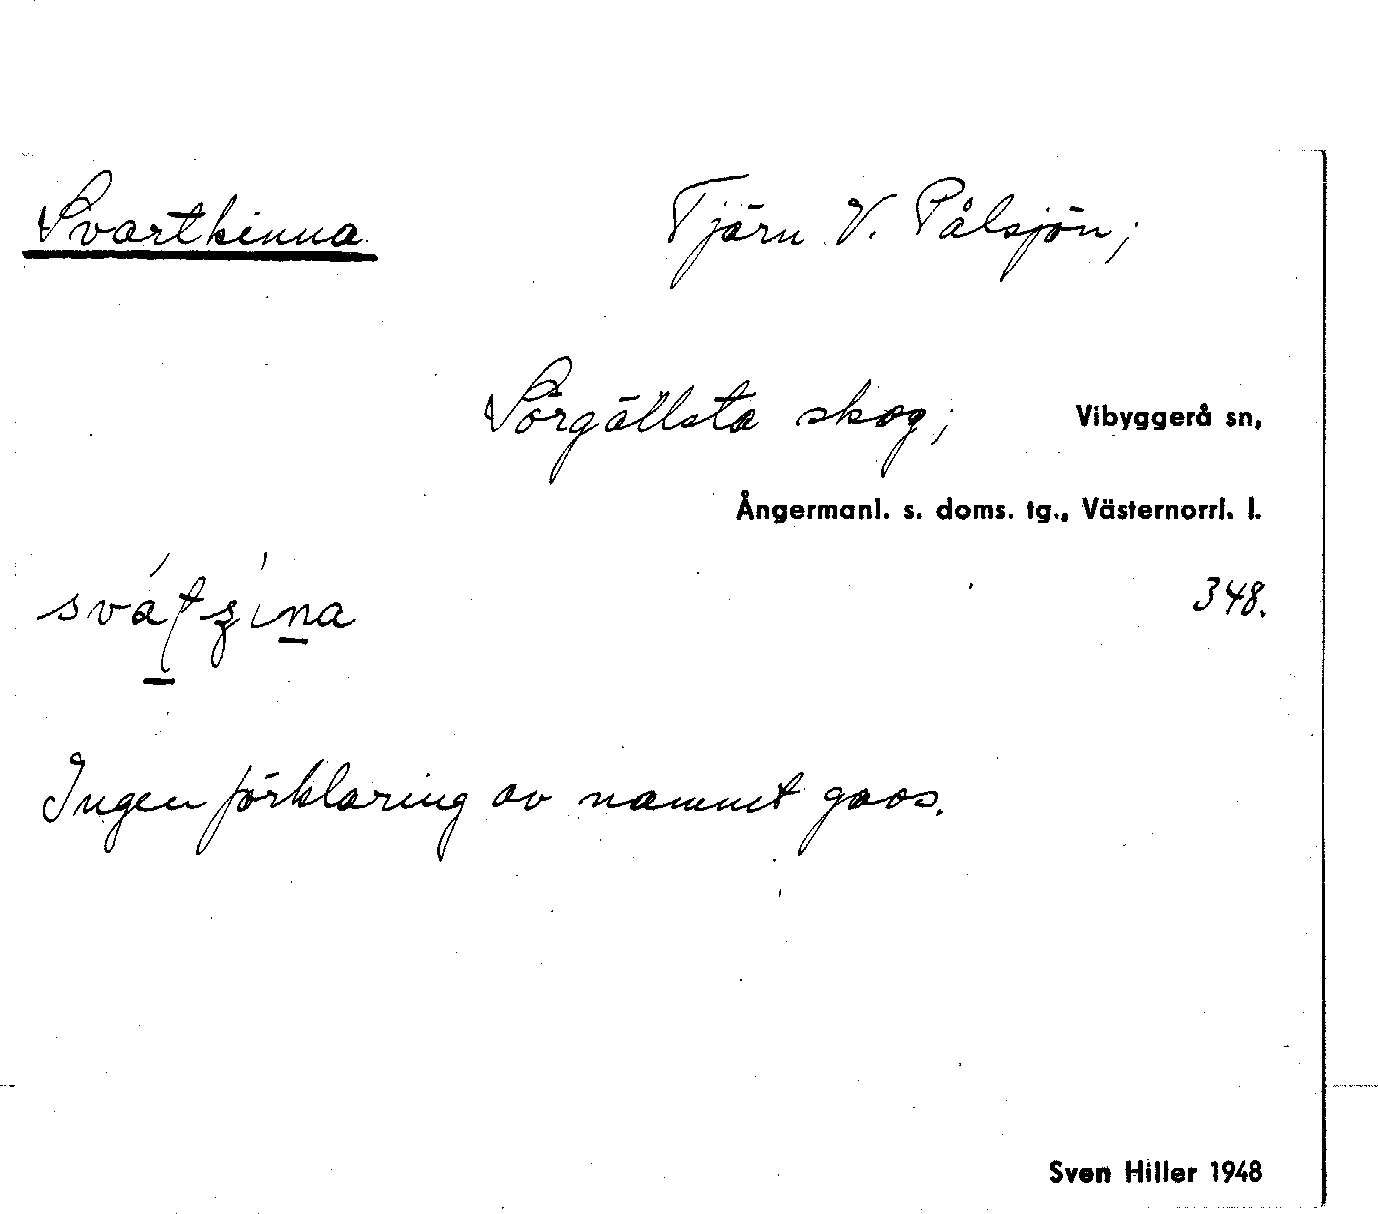 Svartkinna Tjärn V. Pålsjön;
Sörgällsta skog; Vibyggerå sn,
Ångermanl. s. doms. tg., Västernorrl. l.
348.
Ingen förklaring av namnet gavs.
Sven Hiller 1948